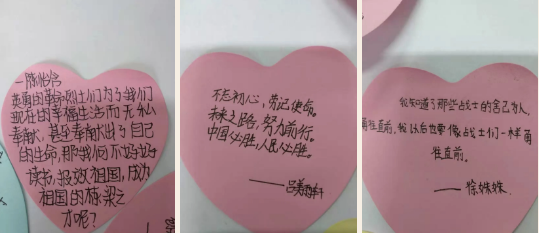 英勇的革命烈士们为了我们
现在的幸福生活而无私
奉献,甚至奉献出了自己
的生命,那我们不好好
读书,报效祖国,成为
祖国的栋梁之
才呢?
不忘初心,劳记使命。
未来之路,努力前行。
中国必胜,人民必胜。
我知道了那些战士的舍己为人,
勇往直前,我以后也要像战士们一样勇
往直前。
——徐姝姝